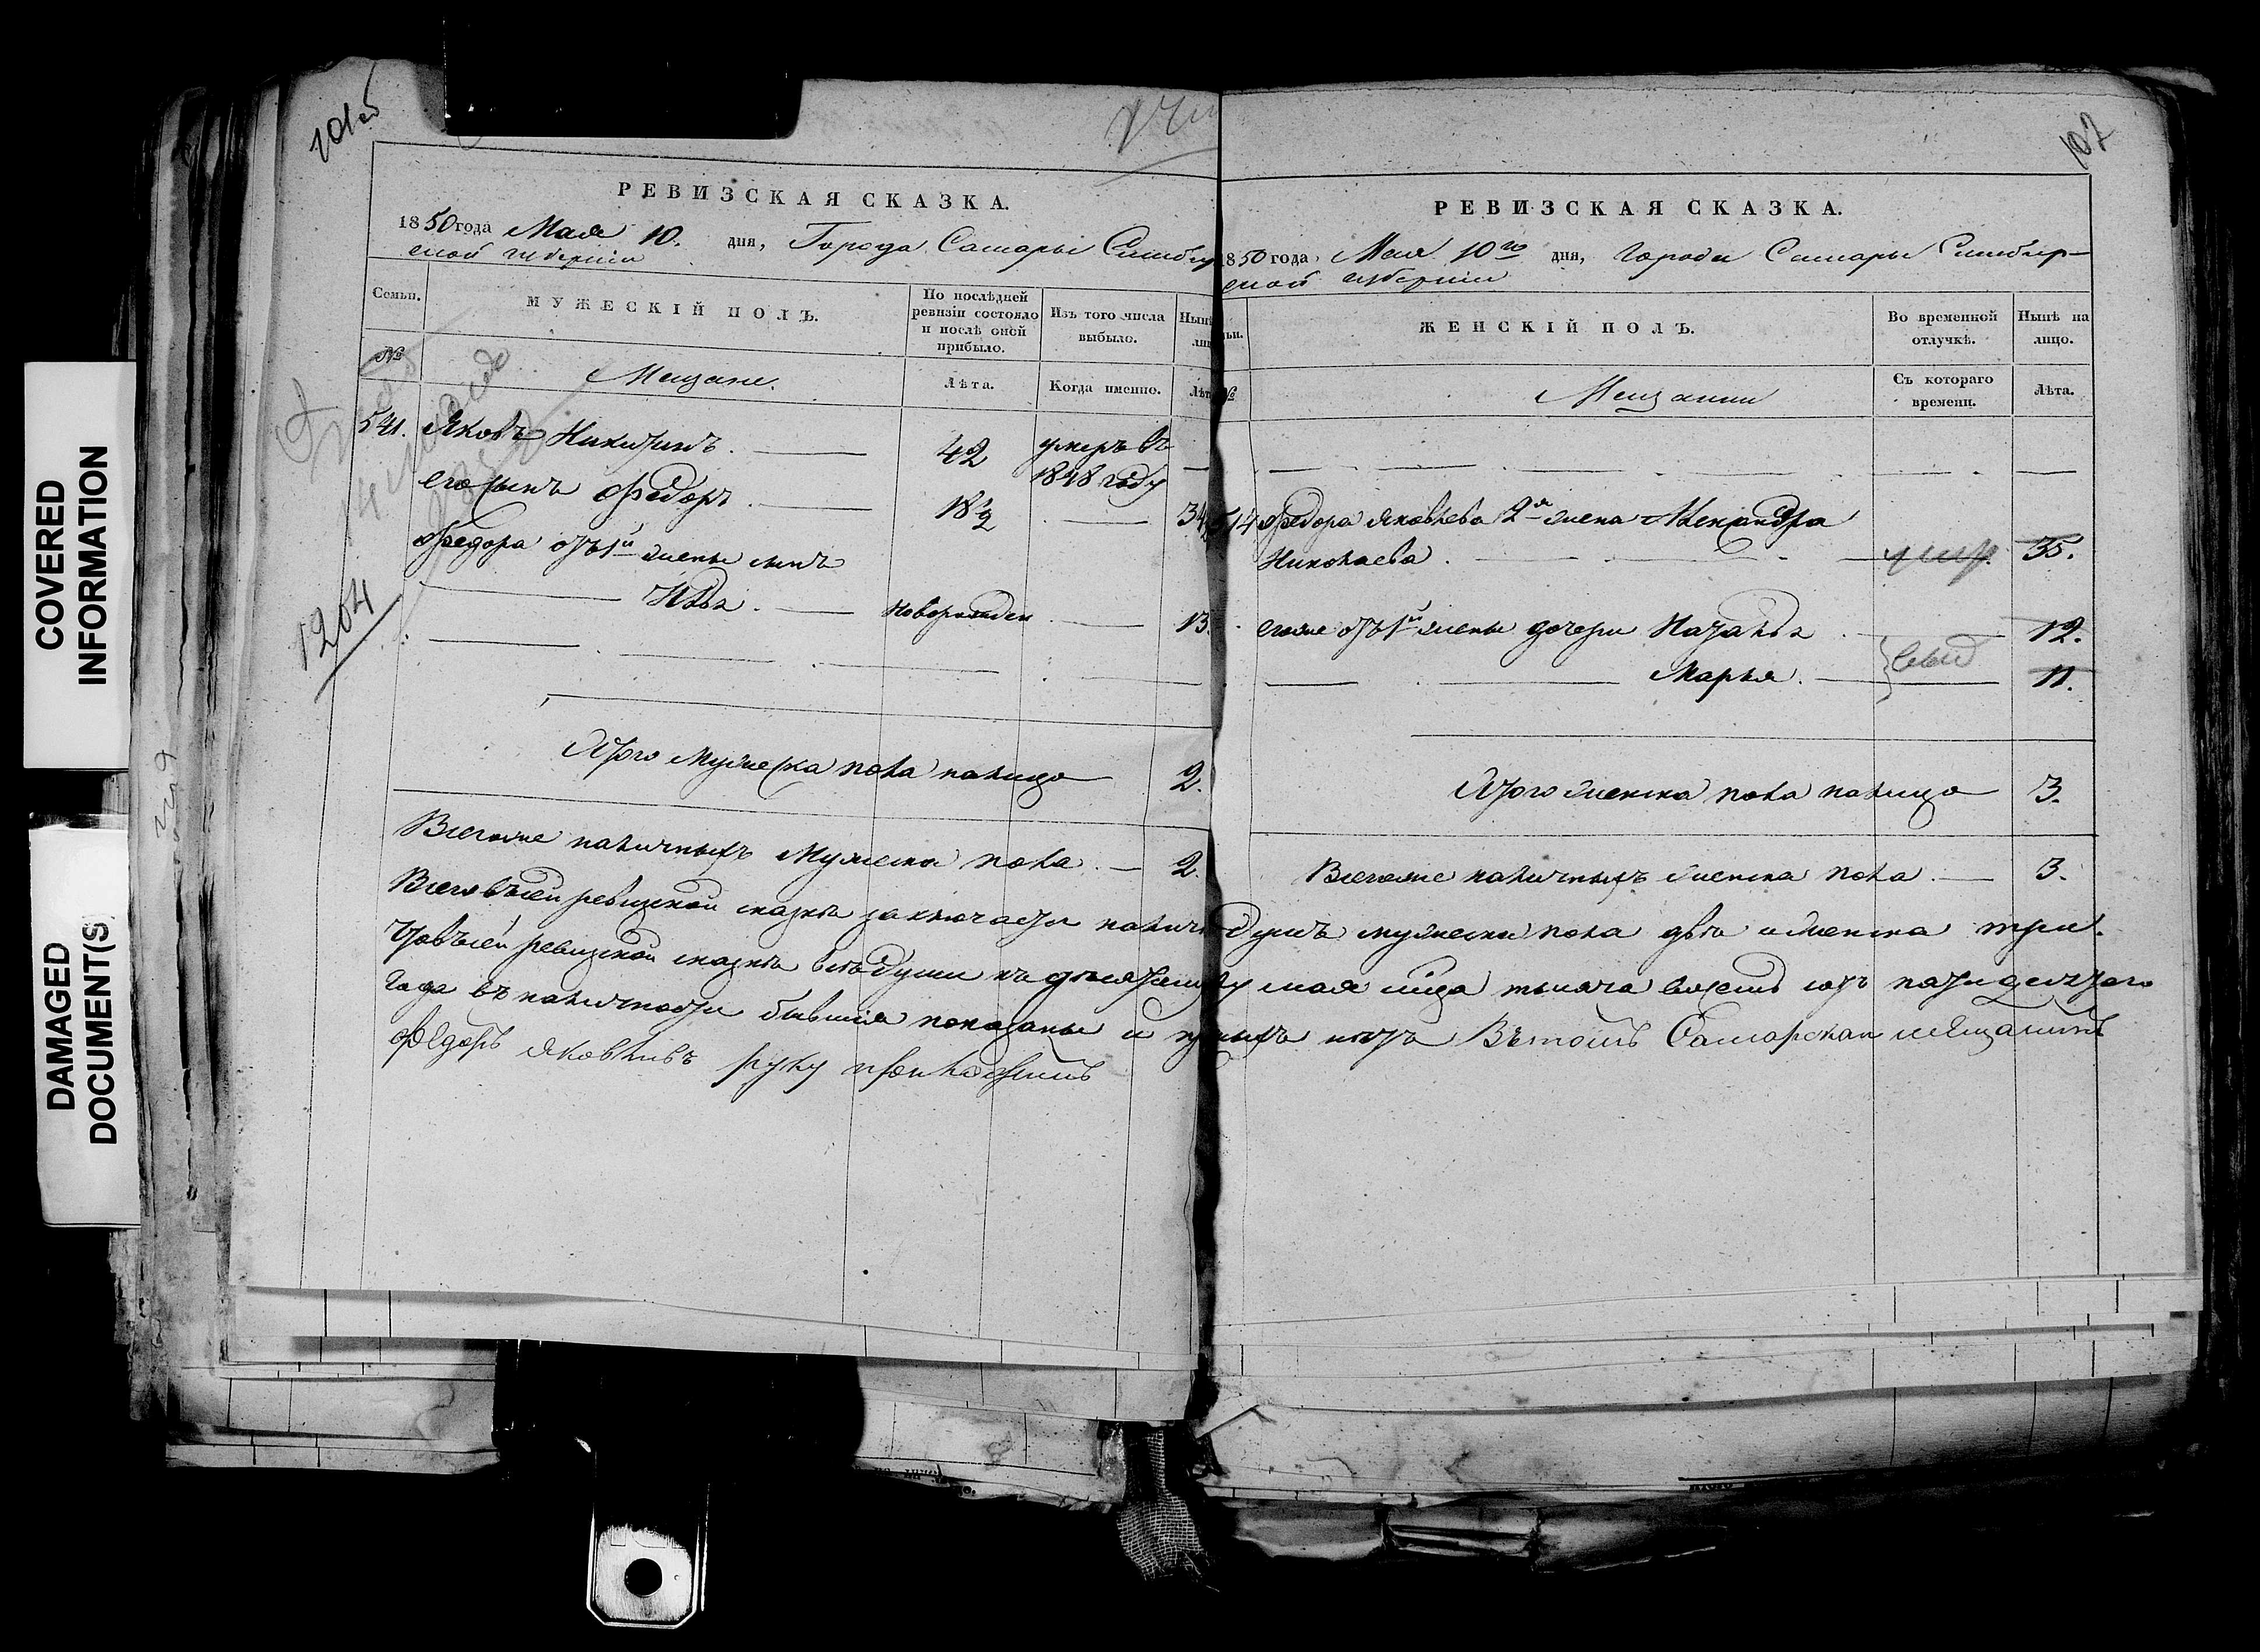 COVERED
INFORMATION
DAMAGED
DOCUMENT(S)
1204
РЕВИЗСКАЯ СКАЗКА.
1850 года Мая 10. дня, Города Самары Симбир
ской губерніи
Семьи.
МУЖЕСКІЙ ПОЛЪ.
По послѣдней
ревизіи состояло
и послѣ оной
прибыло.
Изъ того числа
выбыло.
Нынѣ
№
Мещане.
Лѣта.
Когда именно.
Лѣт
541. Яковъ Никитинъ. 42 умеръ въ
1848 году
его сынъ Федоръ. 18½ 34
Федора отъ 1й жены сынъ
Новорожден 13.
Итого мужеска пола налицо 2.
Всегоже наличныхъ мужеска пола. 2.
107
РЕВИЗСКАЯ СКАЗКА.
1850 года Мая 10го дня, города Самары Симбир-
ской губерніи
ЖЕНСКІЙ ПОЛЪ.
Во временной
отлучкѣ.
Нынѣ на
лицо.
№
Мещанки
Съ котораго
времени.
Лѣта.
Федора Яковлева 2я жена Александра
Николаева. умер. 35.
егоже отъ 1й жены дочери Наталья 12.
Марья. 11.
Итого женска пола налицо 3.
Всегоже наличныхъ женска пола. 3.
Всего въ сей ревизской сказкѣ заключается налич душъ мужеска пола двѣ и женска три.
Что въ сей ревизской сказкѣ всѣ души къ десятому мая мца тысяча восемь сотъ пятидесятаго
года въ наличности бывшія показаны и нѣтъ Въ томъ Самарскай мещанинъ
Федоръ Яковлевъ руку приложилъ